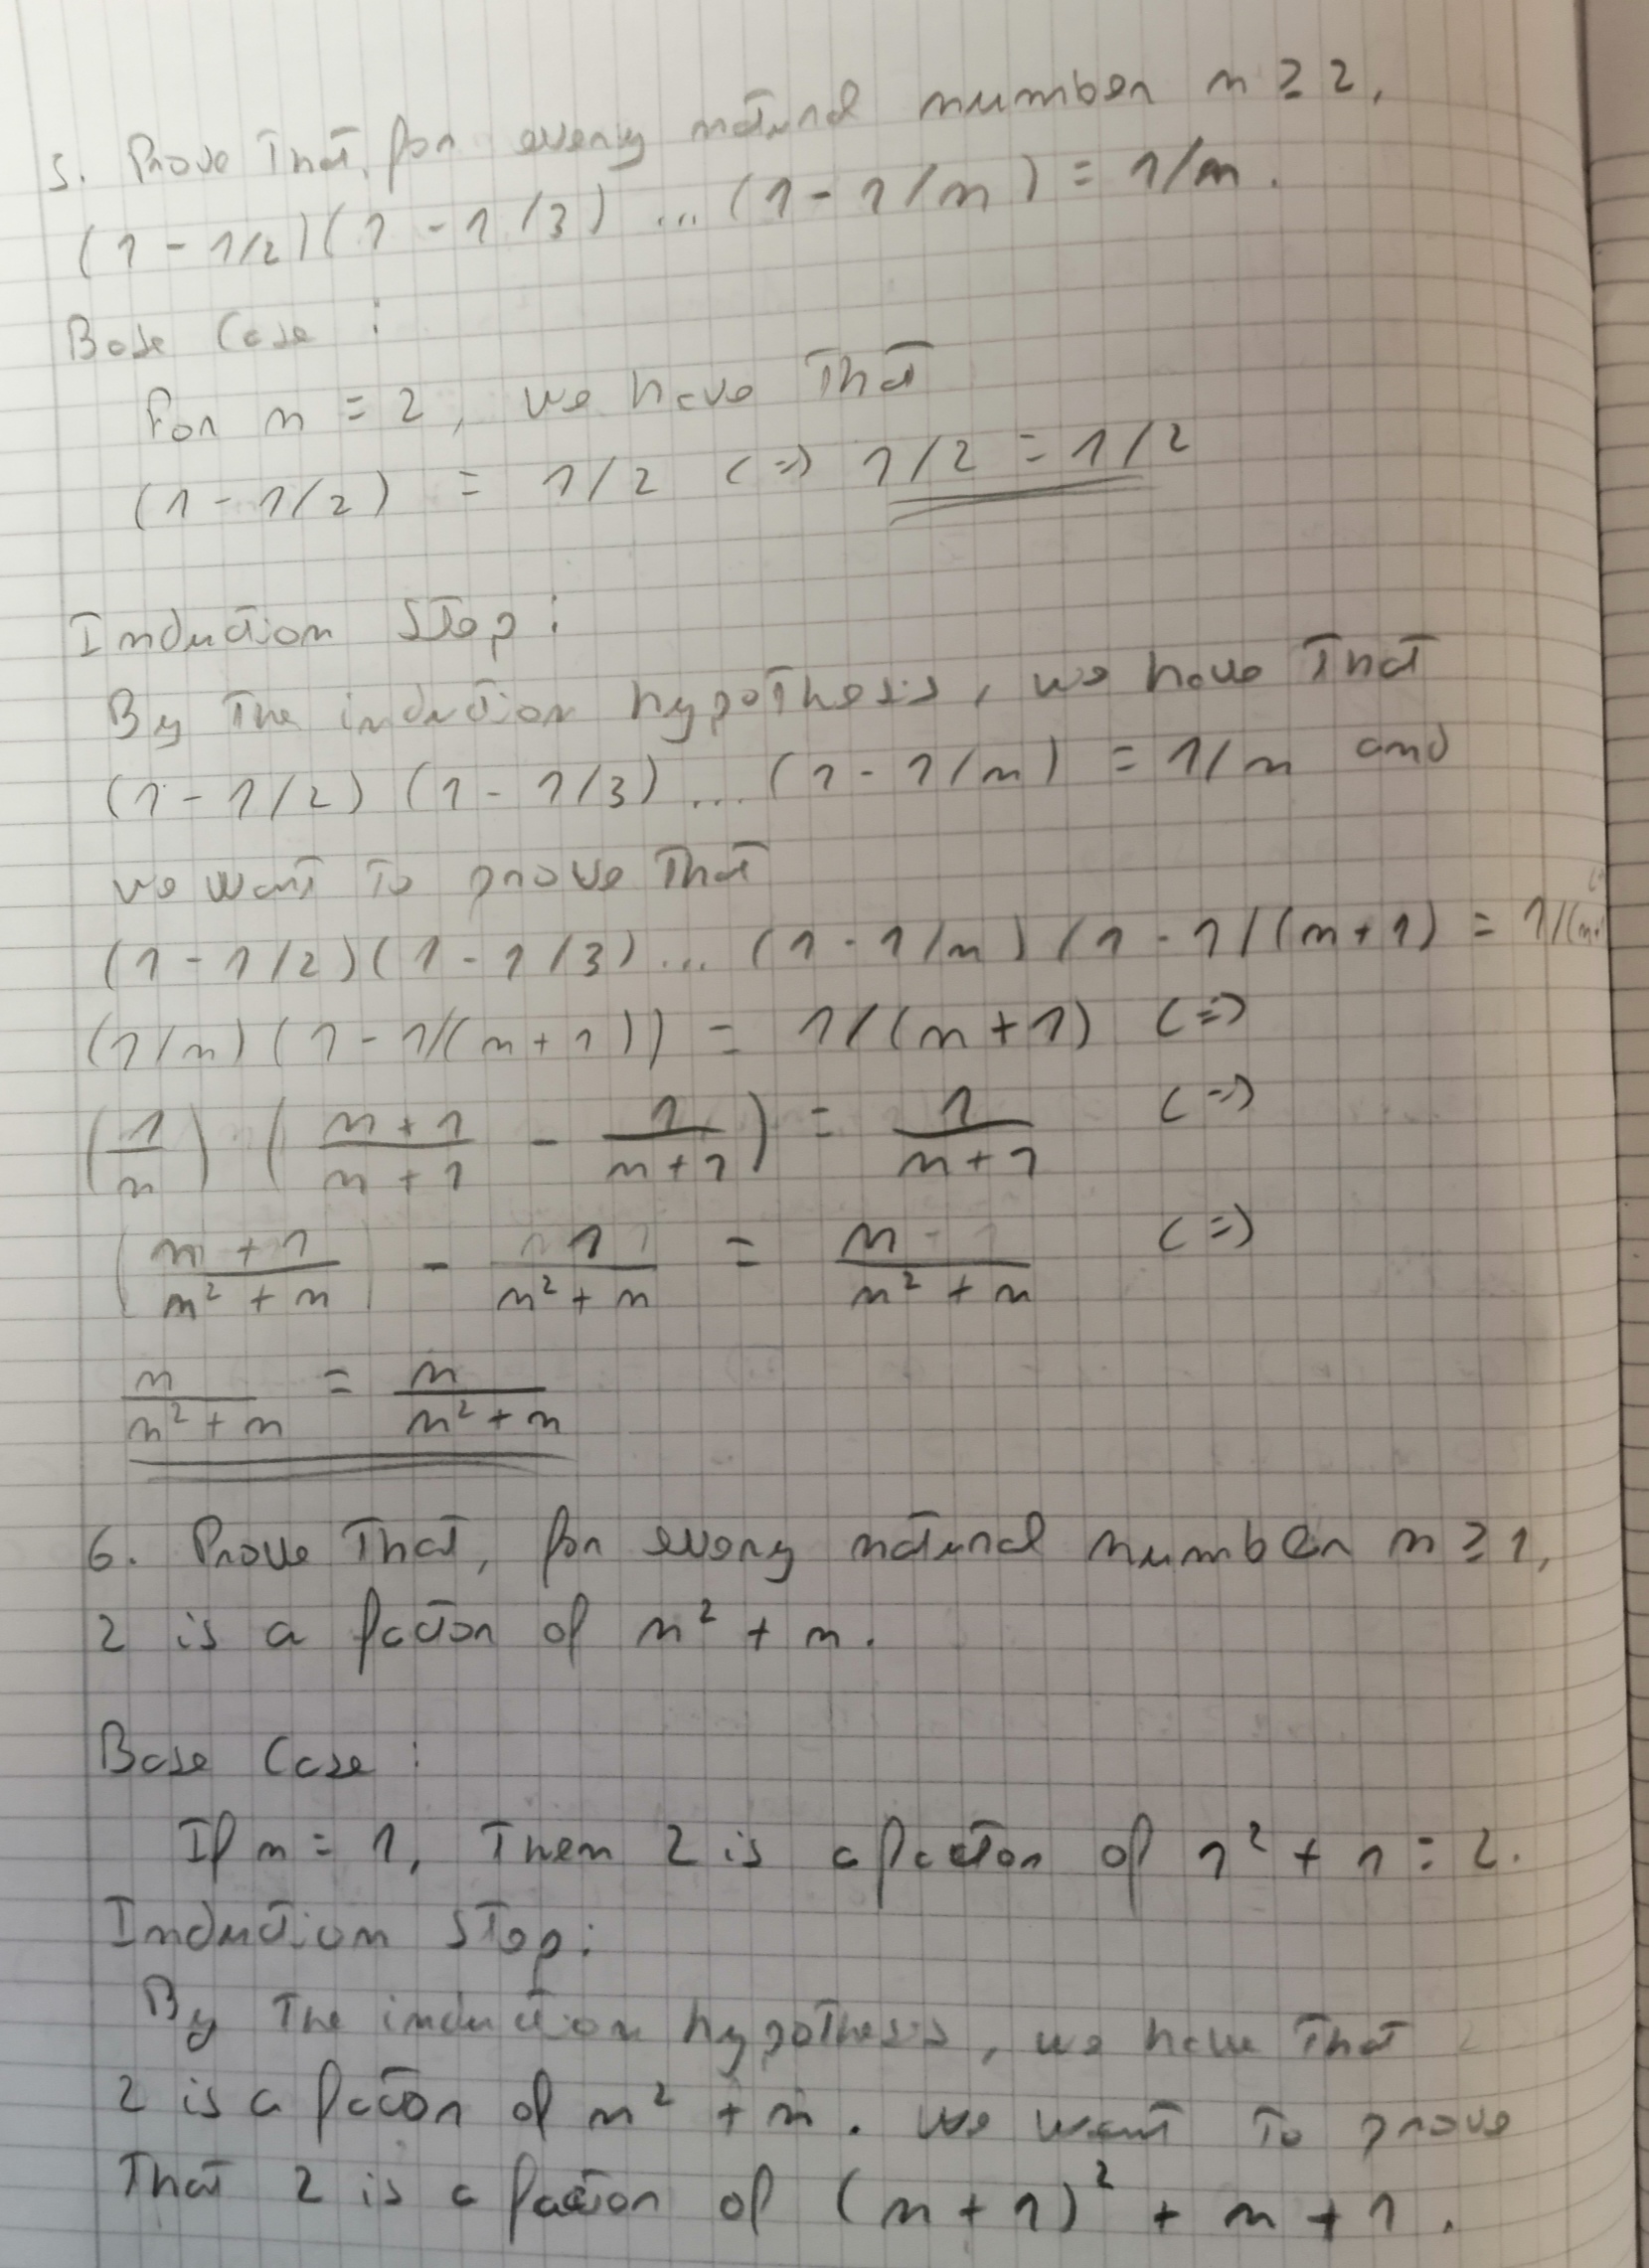 5. Prove that, for every natural number n ≥ 2,
(1 - 1/2)(1 - 1/3) ... (1 - 1/n) = 1/n.
Base Case :
For n = 2, we have that
(1 - 1/2) = 1/2 (=) 1/2 = 1/2
Induction Step :
By the induction hypothesis, we have that
(1 - 1/2) (1 - 1/3) ... (1 - 1/n) = 1/n and
we want to prove that
(1 - 1/2)(1 - 1/3) ... (1 - 1/n) (1 - 1/(n+1) = 1/(n+
(1/n) (1 - 1/(n+1)) = 1/(n+1) (=)
(1/n) ((n+1)/(n+1) - 1/(n+1)) = 1/(n+1) (=)
(n+1)/(n² + n) - 1/(n² + n) = n/(n² + n) (=)
n/(n² + n) = n/(n² + n)
6. Prove that, for every natural number n ≥ 1,
2 is a factor of n² + n.
Base Case :
If n = 1, then 2 is a factor of 1² + 1 = 2.
Induction Step:
By the induction hypothesis, we have that
2 is a factor of n² + n. We want to prove
that 2 is a factor of (n + 1)² + n + 1.